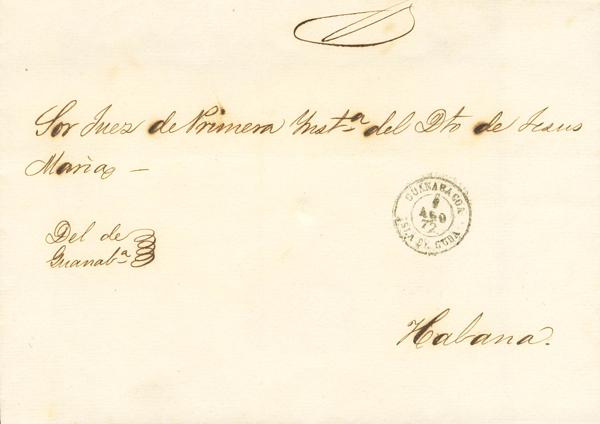 Sor Juez de Primera Insta del Dto de Jesus
Maria —
GUANABACOA
AGO
72
ISLA DE CUBA
Del de
Guanaba
Habana.